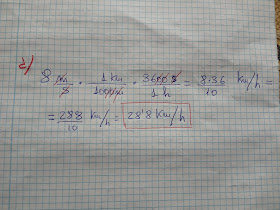 c) 8 m/s · 1 km/1000 m · 3600 s/1 h = 8·36/10 km/h =
= 288/10 km/h = 28'8 km/h